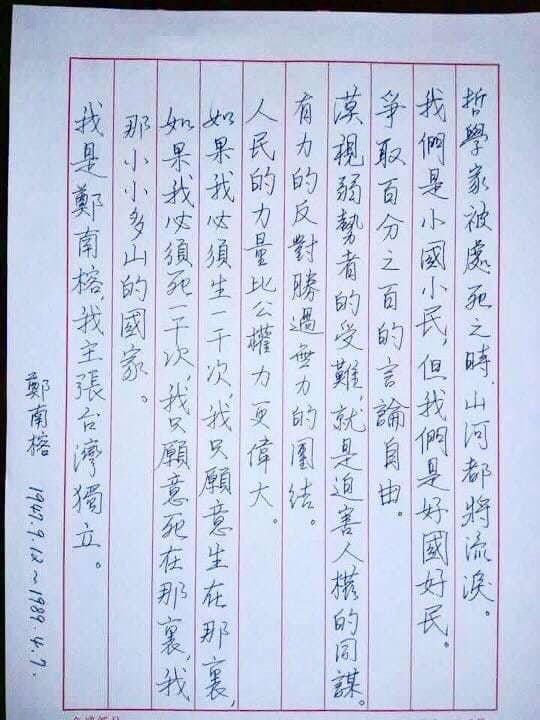 哲學家被處死之時,山河都將流淚。
我們是小國小民,但我們是好國好民。
爭取百分之百的言論自由。
漠視弱勢者的受難,就是迫害人權的同謀。
有力的反對勝過無力的團結。
人民的力量比公權力更偉大。
如果我必須生一千次,我只願意生在那裏,
如果我必須死一千次,我只願意死在那裏,我
那小小多山的國家。
我是鄭南榕,我主張台灣獨立。
鄭南榕 1947.9.12~1989.4.7.